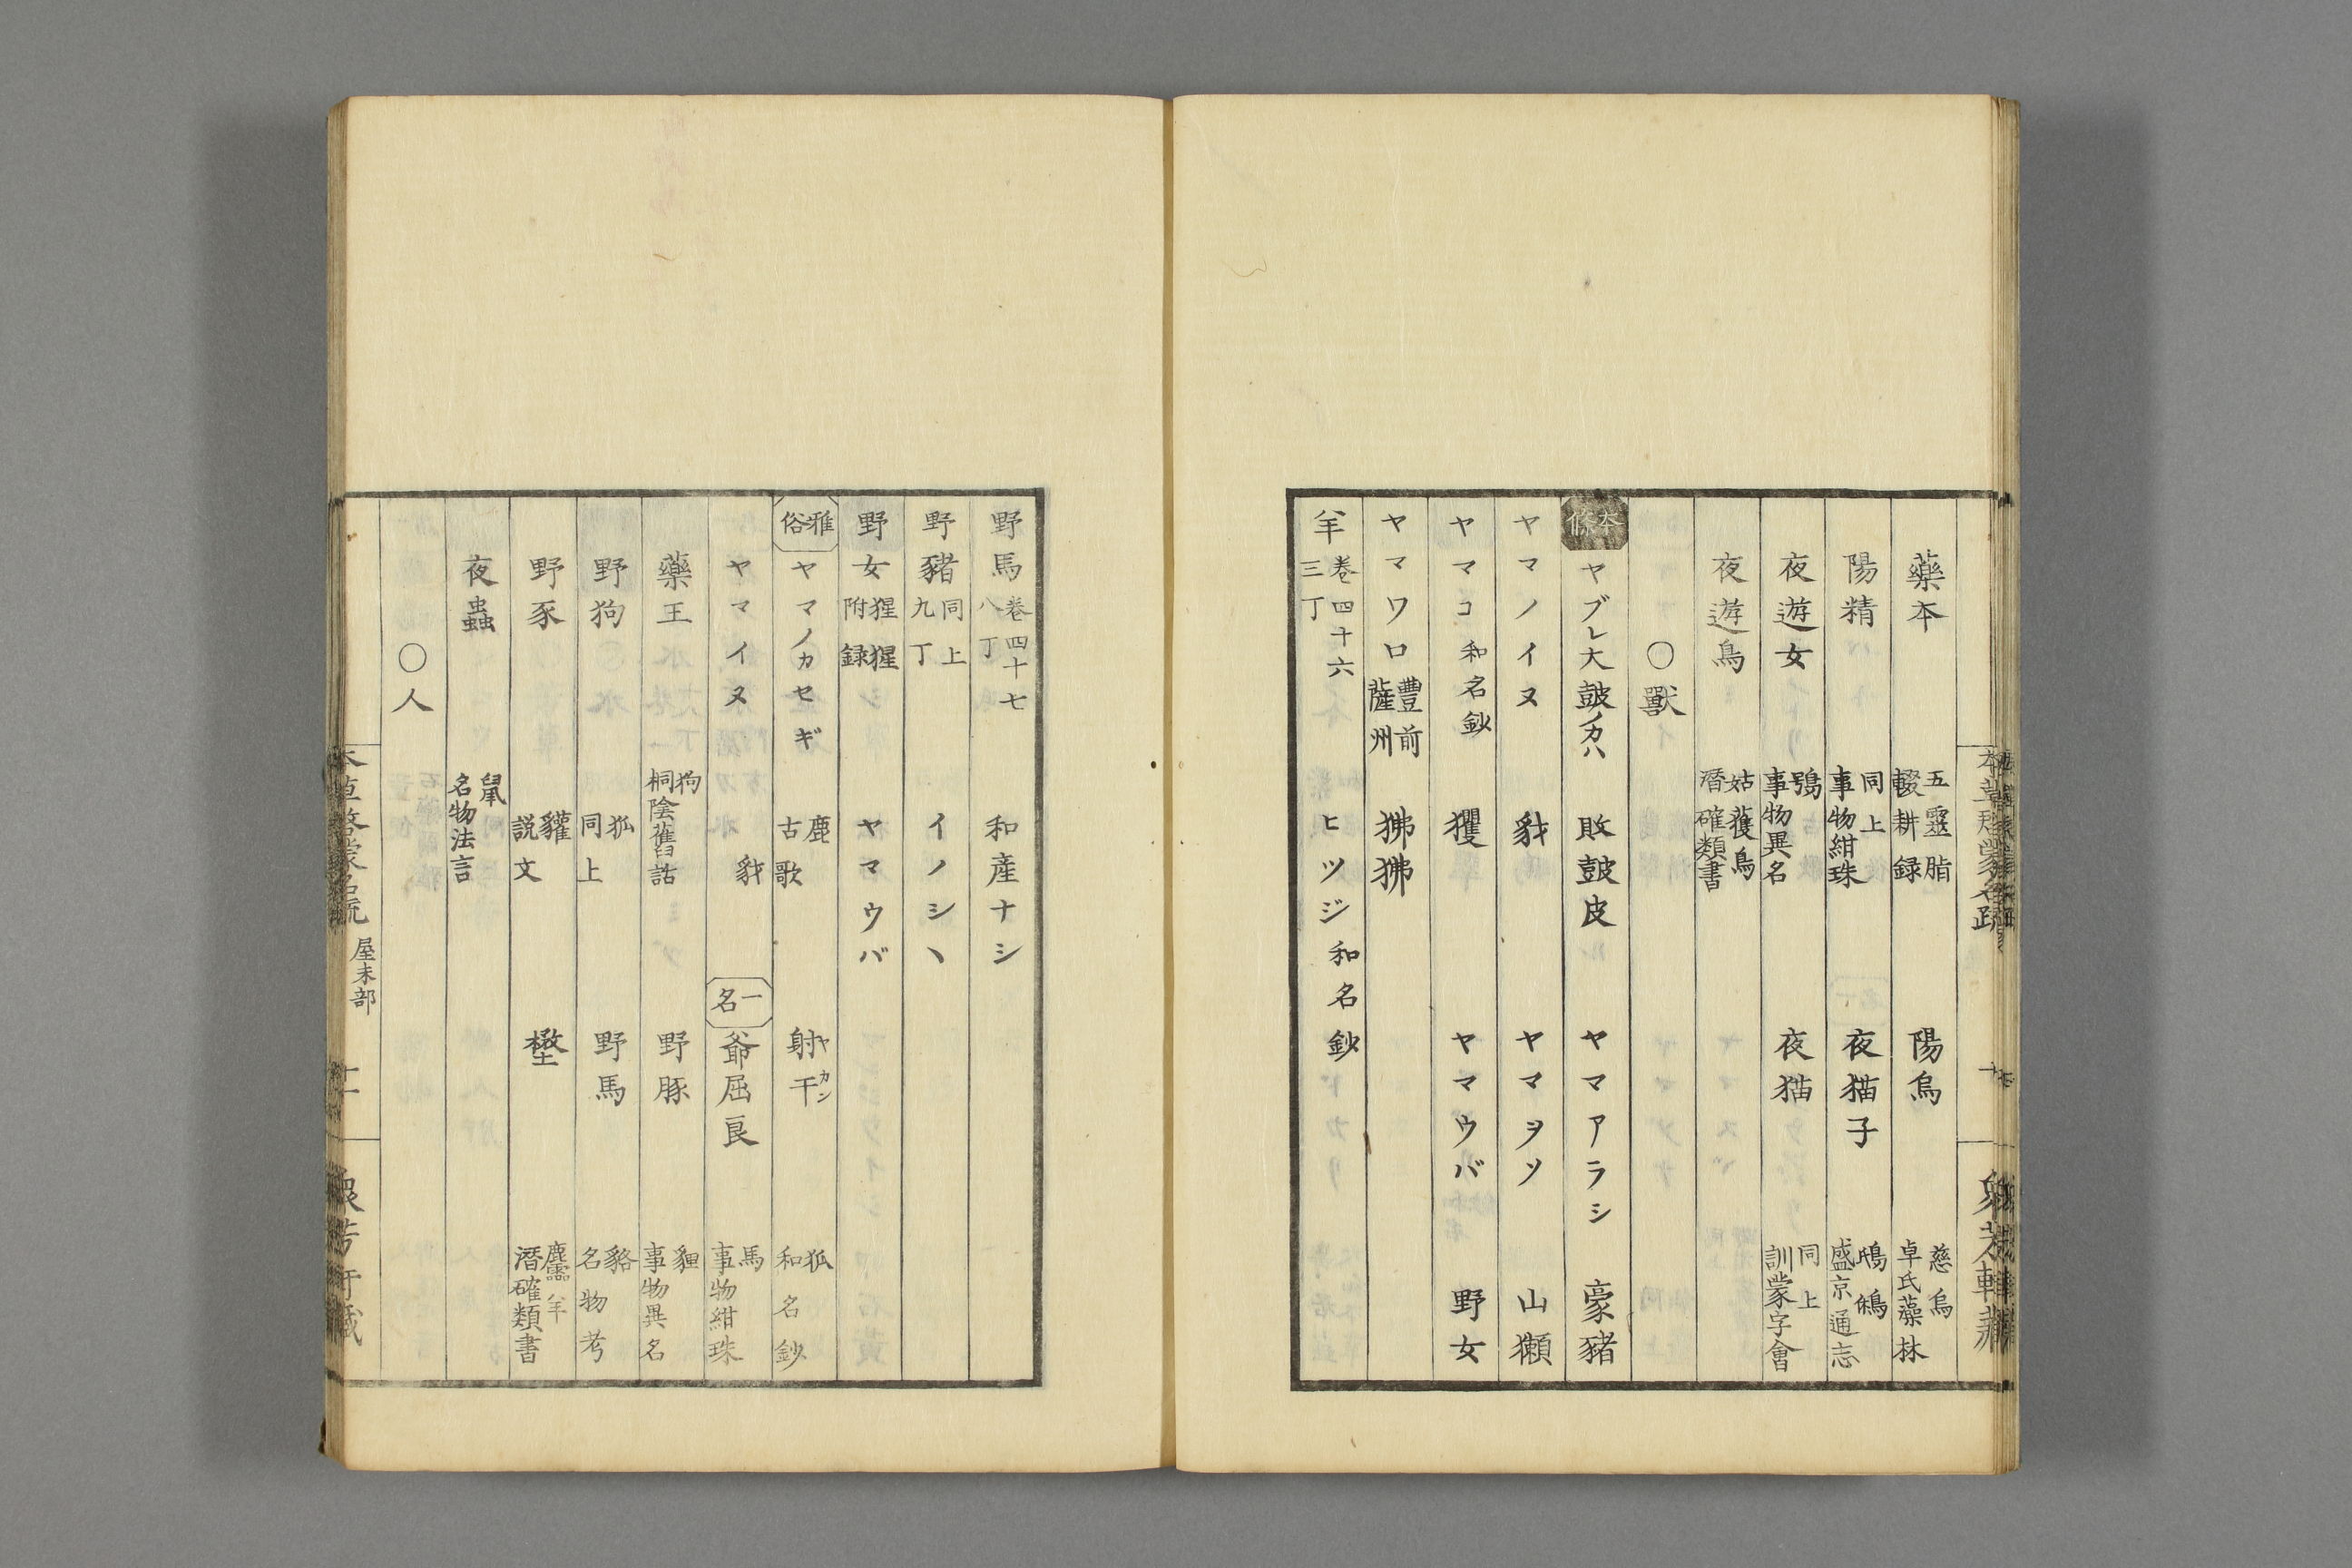 藥本 五靈脂 輟耕録 陽烏 慈烏 卓氏藻林
陽精 同上 事物紺珠 夜猫子 鴟鵂 盛京通志
夜遊女 鴞 事物異名 夜猫 同上 訓蒙字會
夜遊鳥 姑蒦鳥 潛確類書
〇獸
本條 ヤブレ大皷ノカハ 敗皷皮 ヤマアラシ 豪豬
ヤマノイヌ 豺 ヤマヲソ 山獺
ヤマコ 和名鈔 玃 ヤマウバ 野女
ヤマワロ 豐前 薩州 狒狒
羊 卷四十六 三丁 ヒツジ 和名鈔
野馬 卷四十七 八丁 和産ナシ
野豬 同上 九丁 イノシヽ
野女 猩猩附録 ヤマウバ
雅俗 ヤマノカセギ 鹿 古歌 射干 ヤカン 狐 和名鈔
ヤマイヌ 豺 一名 爺屈良 馬 事物紺珠
藥王 狗 桐陰舊話 野豚 貍 事物異名
野狗 狐 同上 野馬 貉 名物考
野豕 貛 説文 麢羊 潛確類書
夜蟲 鼠 名物法言
〇人
本草啓蒙名疏 屋末部 十一 衆芳軒藏